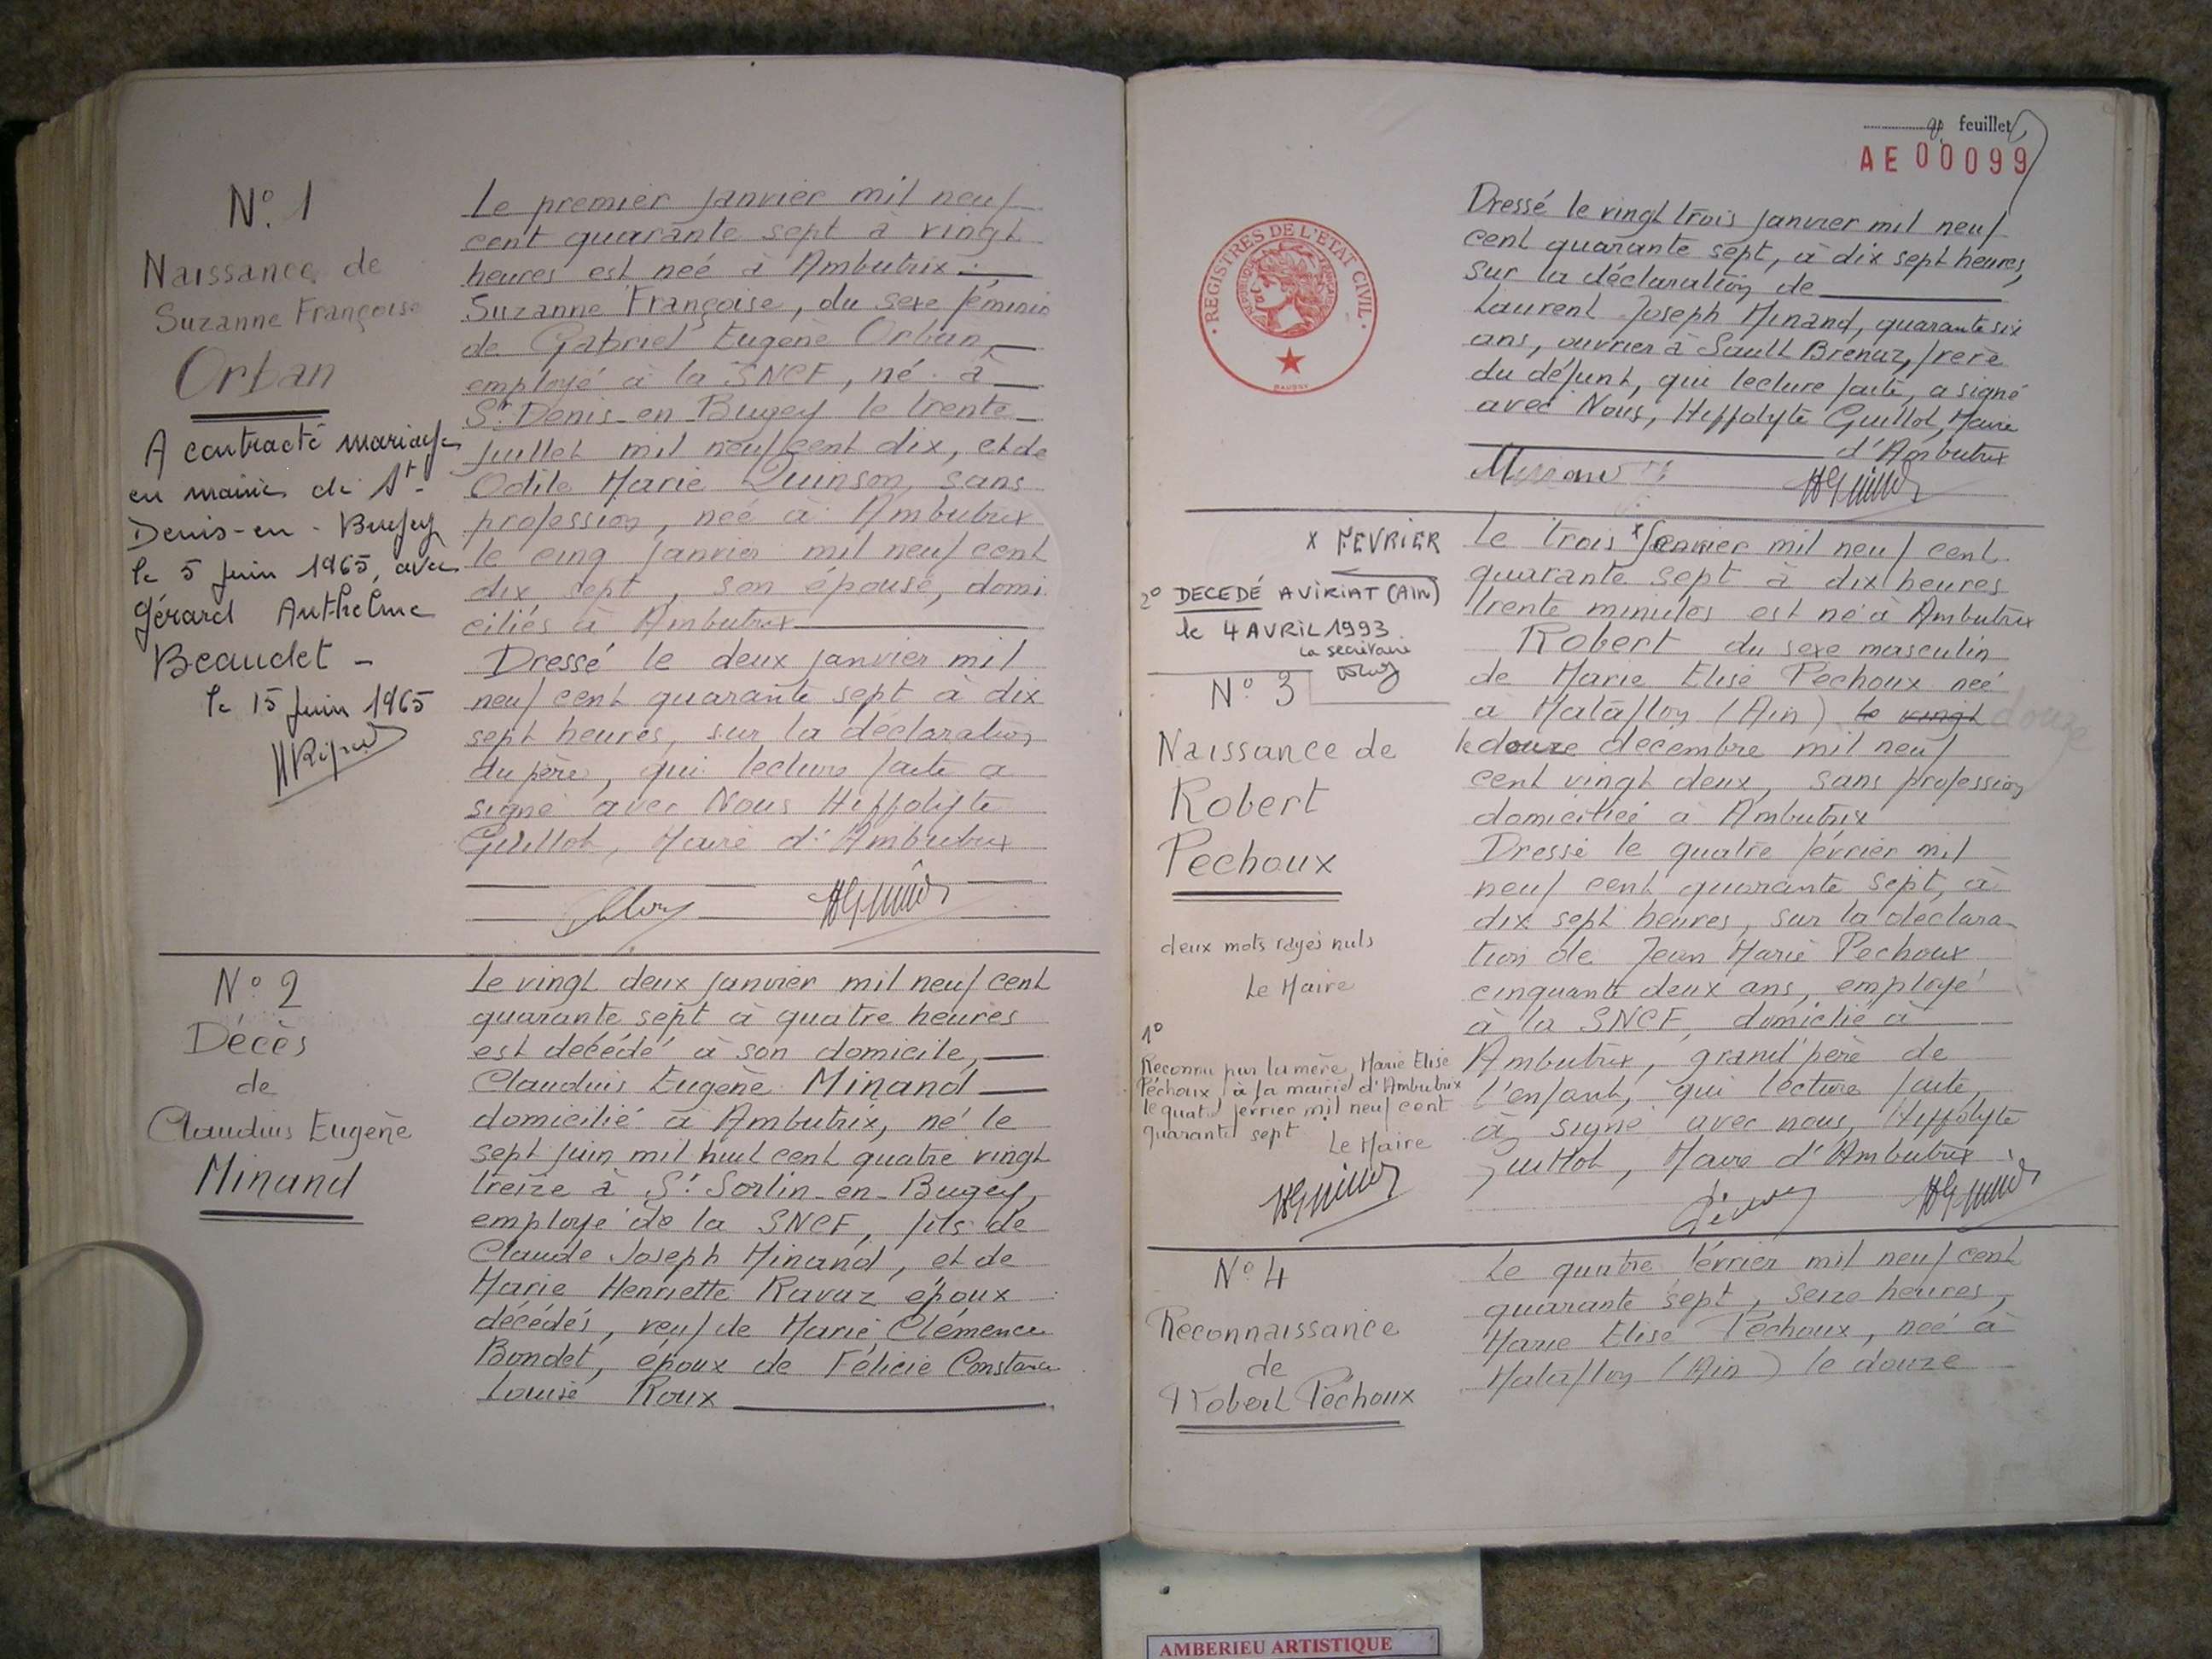 N° 1
Naissance de
Suzanne Françoise
Orban
A contracté mariage
en mairie de St-
Denis-en-Bugey
le 5 juin 1965, avec
Gérard Anthelme
Beaudet -
le 15 juin 1965
Le premier janvier mil neuf
cent quarante sept à vingt
heures est neé à Ambutrix :
Suzanne Françoise, du sexe féminin
de Gabriel Eugène Orban,
employé à la SNCF, né à
St Denis-en-Bugey le trente
juillet mil neuf cent dix, et de
Odile Marie Quinson, sans
profession, neé à Ambutrix
le cinq janvier mil neuf cent
dix sept, son épouse, domi
ciliés à Ambutrix
Dressé le deux janvier mil
neuf cent quarante sept à dix
sept heures, sur la déclaration
du père, qui lecture faite a
signé avec Nous Hippolyte
Guillot, Maire d'Ambutrix
N° 2
Décès
de
Claudius Eugène
Minand
Le vingt deux janvier mil neuf cent
quarante sept à quatre heures
est décédé à son domicile,
Claudius Eugène Minand
domicilié à Ambutrix, né le
sept juin mil huit cent quatre vingt
treize à St Sorlin-en-Bugey,
employé de la SNCF, fils de
Claude Joseph Minand, et de
Marie Henriette Ravaz époux
décédés, veuf de Marie Clémence
Bondet, époux de Félicie Constance
Louise Roux
feuillet
AE 00099
REGISTRES DE L'ETAT CIVIL
Dressé le vingt trois janvier mil neuf
cent quarante sept, à dix sept heures,
sur la déclaration de
Laurent Joseph Minand, quarante six
ans, ouvrier à Sault Brenaz, frère
du défunt, qui lecture faite, a signé
avec Nous, Hippolyte Guillot, Maire
d'Ambutrix
x FEVRIER
2° DECEDÉ A VIRIAT (AIN)
le 4 AVRIL 1993.
La secrétaire
N° 3
Naissance de
Robert
Pechoux
deux mots rayés nuls
Le Maire
1°
Reconnu par la mère, Marie Elise
Péchoux à la mairie d'Ambutrix
le quatre février mil neuf cent
quarante sept
Le Maire
Le trois x Janvier mil neuf cent
quarante sept à dix heures
trente minutes est né à Ambutrix
Robert du sexe masculin
de Marie Elise Pechoux neé
à Matafloy (Ain) le vingt douze
le douze décembre mil neuf
cent vingt deux, sans profession
domiciliée à Ambutrix
Dressé le quatre février mil
neuf cent quarante sept, à
dix sept heures, sur la déclara
tion de Jean Marie Pechoux
cinquante deux ans, employé
à la SNCF domicilié à
Ambutrix, grand'père de
l'enfant, qui lecture faite,
à signé avec nous, Hippolyte
Guillot, Maire d'Ambutrix
N° 4
Reconnaissance
de
Robert Péchoux
Le quatre février mil neuf cent
quarante sept, seize heures,
Marie Elise Péchoux, neé à
Matafloy (Ain) le douze
AMBERIEU ARTISTIQUE